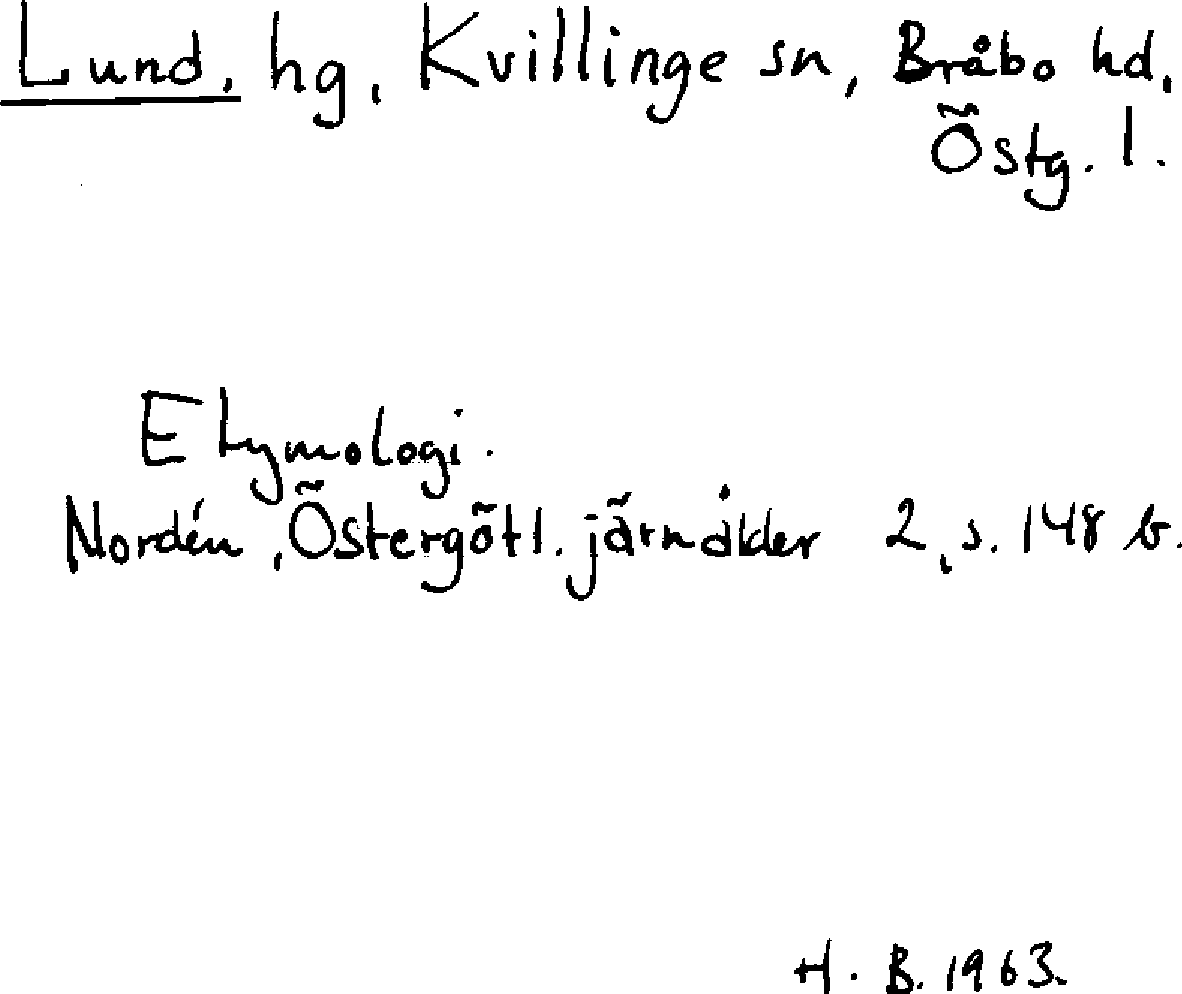 Lund, hg, Kvillinge sn, Bråbo hd,
Östg. l.
Etymologi.
Nordén, Östergötl. järnålder 2, s. 148 b.
H. B. 1963.